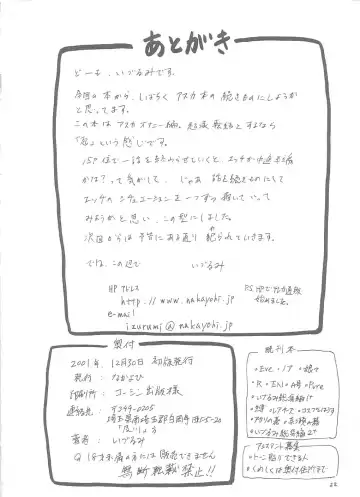 あとがき
どーも、いづるみです。
今回の本から、しばらくアスカ本の続きものにしようか
と思ってます。
この本はアスカオナニー編。起承転結とするなら
「起」という感じです。
15P位で一話を終わらせていくと、エッチが中途半端
かな?って気がして、じゃあ話を続きものにして
エッチのシチュエーションを一つずつ描いていって
みようかと思い、この型にしました。
次回からは予告にある通り犯られていきます。
では、この辺で いづるみ
HPアドレス
http://www.nakayohi.jp
e-mail
izurumi@nakayohi.jp
P.S. HPで通販
始めました。
奥付
2001年、12月30日 初版発行
発行: なかよひ
印刷所: コーシン出版様
連絡先: 〒349-0205
埼玉県南埼玉郡白岡町
著者: いづるみ
18才未満の方には販売できません
無断転載禁止!!
既刊本
いづるみ総集編1
いづるみ総集編2
アシスタント募集
トーン貼りできる人
くわしくは奥付住所まで
22